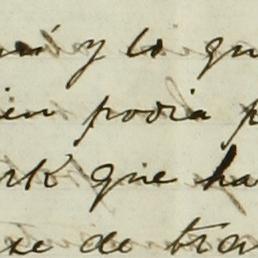 y lo qu
ien podia p
rk que ha
xe de tra